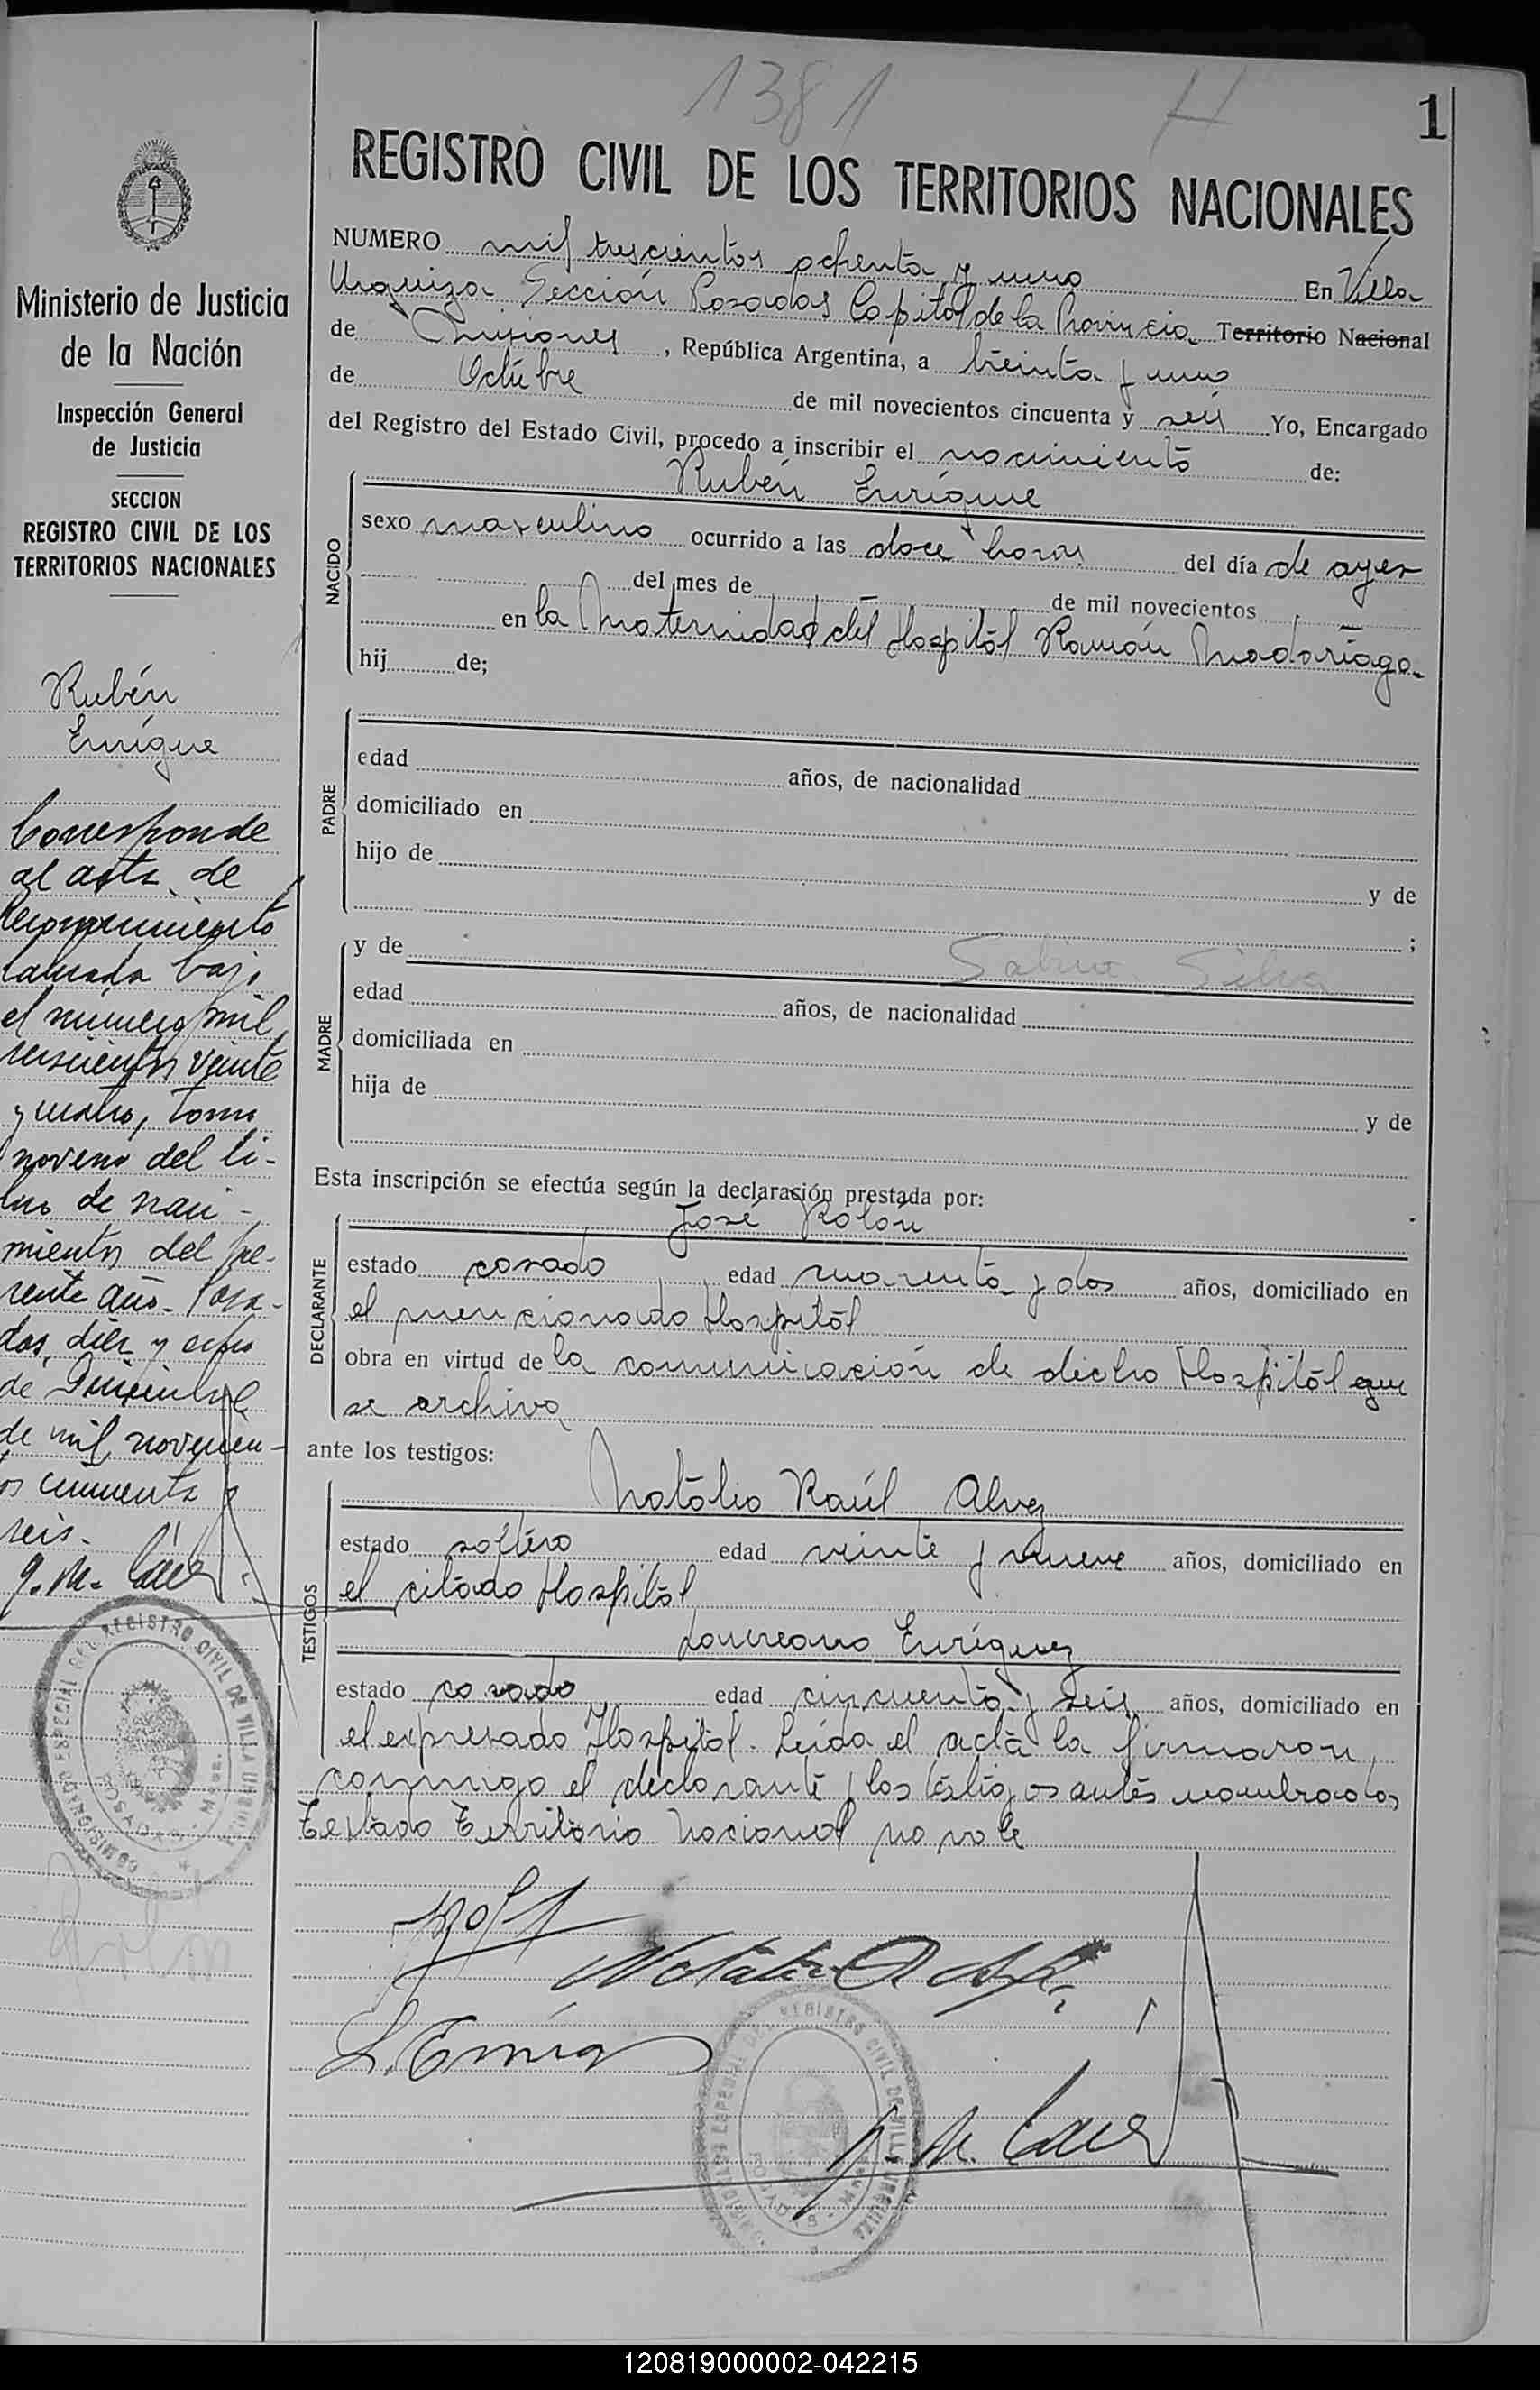 1381 H
1
REGISTRO CIVIL DE LOS TERRITORIOS NACIONALES
NUMERO mil trescientos ochenta y uno En Villa
Urquiza Sección Posadas Capital de la Provincia Territorio Nacional
de Misiones, República Argentina, a treinta y uno
de Octubre de mil novecientos cincuenta y seis Yo, Encargado
del Registro del Estado Civil, procedo a inscribir el nacimiento de:
NACIDO
Rubén Enrique
sexo masculino ocurrido a las doce horas del día de ayer
del mes de de mil novecientos
en la Maternidad del Hospital Ramón Madariaga
hij de;
PADRE
edad años, de nacionalidad
domiciliado en
hijo de
y de
;
MADRE
y de Sabina Silva
edad años, de nacionalidad
domiciliada en
hija de
y de
Esta inscripción se efectúa según la declaración prestada por:
DECLARANTE
José Rolón
estado casado edad cuarenta y dos años, domiciliado en
el mencionado Hospital
obra en virtud de la comunicación de dicho Hospital que
se archiva
ante los testigos:
TESTIGOS
Natalio Raúl Alvez
estado soltero edad veinte y nueve años, domiciliado en
el citado Hospital
Laureano Enríquez
estado casado edad cincuenta y seis años, domiciliado en
el expresado Hospital. Leída el acta la firmaron
conmigo el declarante y los testigos antes nombrados
Testado Territorio Nacional no vale
Ministerio de Justicia
de la Nación
Inspección General
de Justicia
SECCION
REGISTRO CIVIL DE LOS
TERRITORIOS NACIONALES
Rubén
Enrique
Corresponde
al acta de
reconocimiento
labrada bajo
el número mil
seiscientos veinte
y cuatro, tomo
noveno del li-
bro de naci-
mientos del pre-
sente año. Posa-
das, diez y ocho
de Diciembre
de mil novecien-
tos cincuenta y
seis.
COMISIONADO ESPECIAL DEL REGISTRO CIVIL DE VILLA URQUIZA
POSADAS - Mnes.
COMISIONADO ESPECIAL DEL REGISTRO CIVIL DE VILLA URQUIZA
POSADAS - Mnes.
120819000002-042215